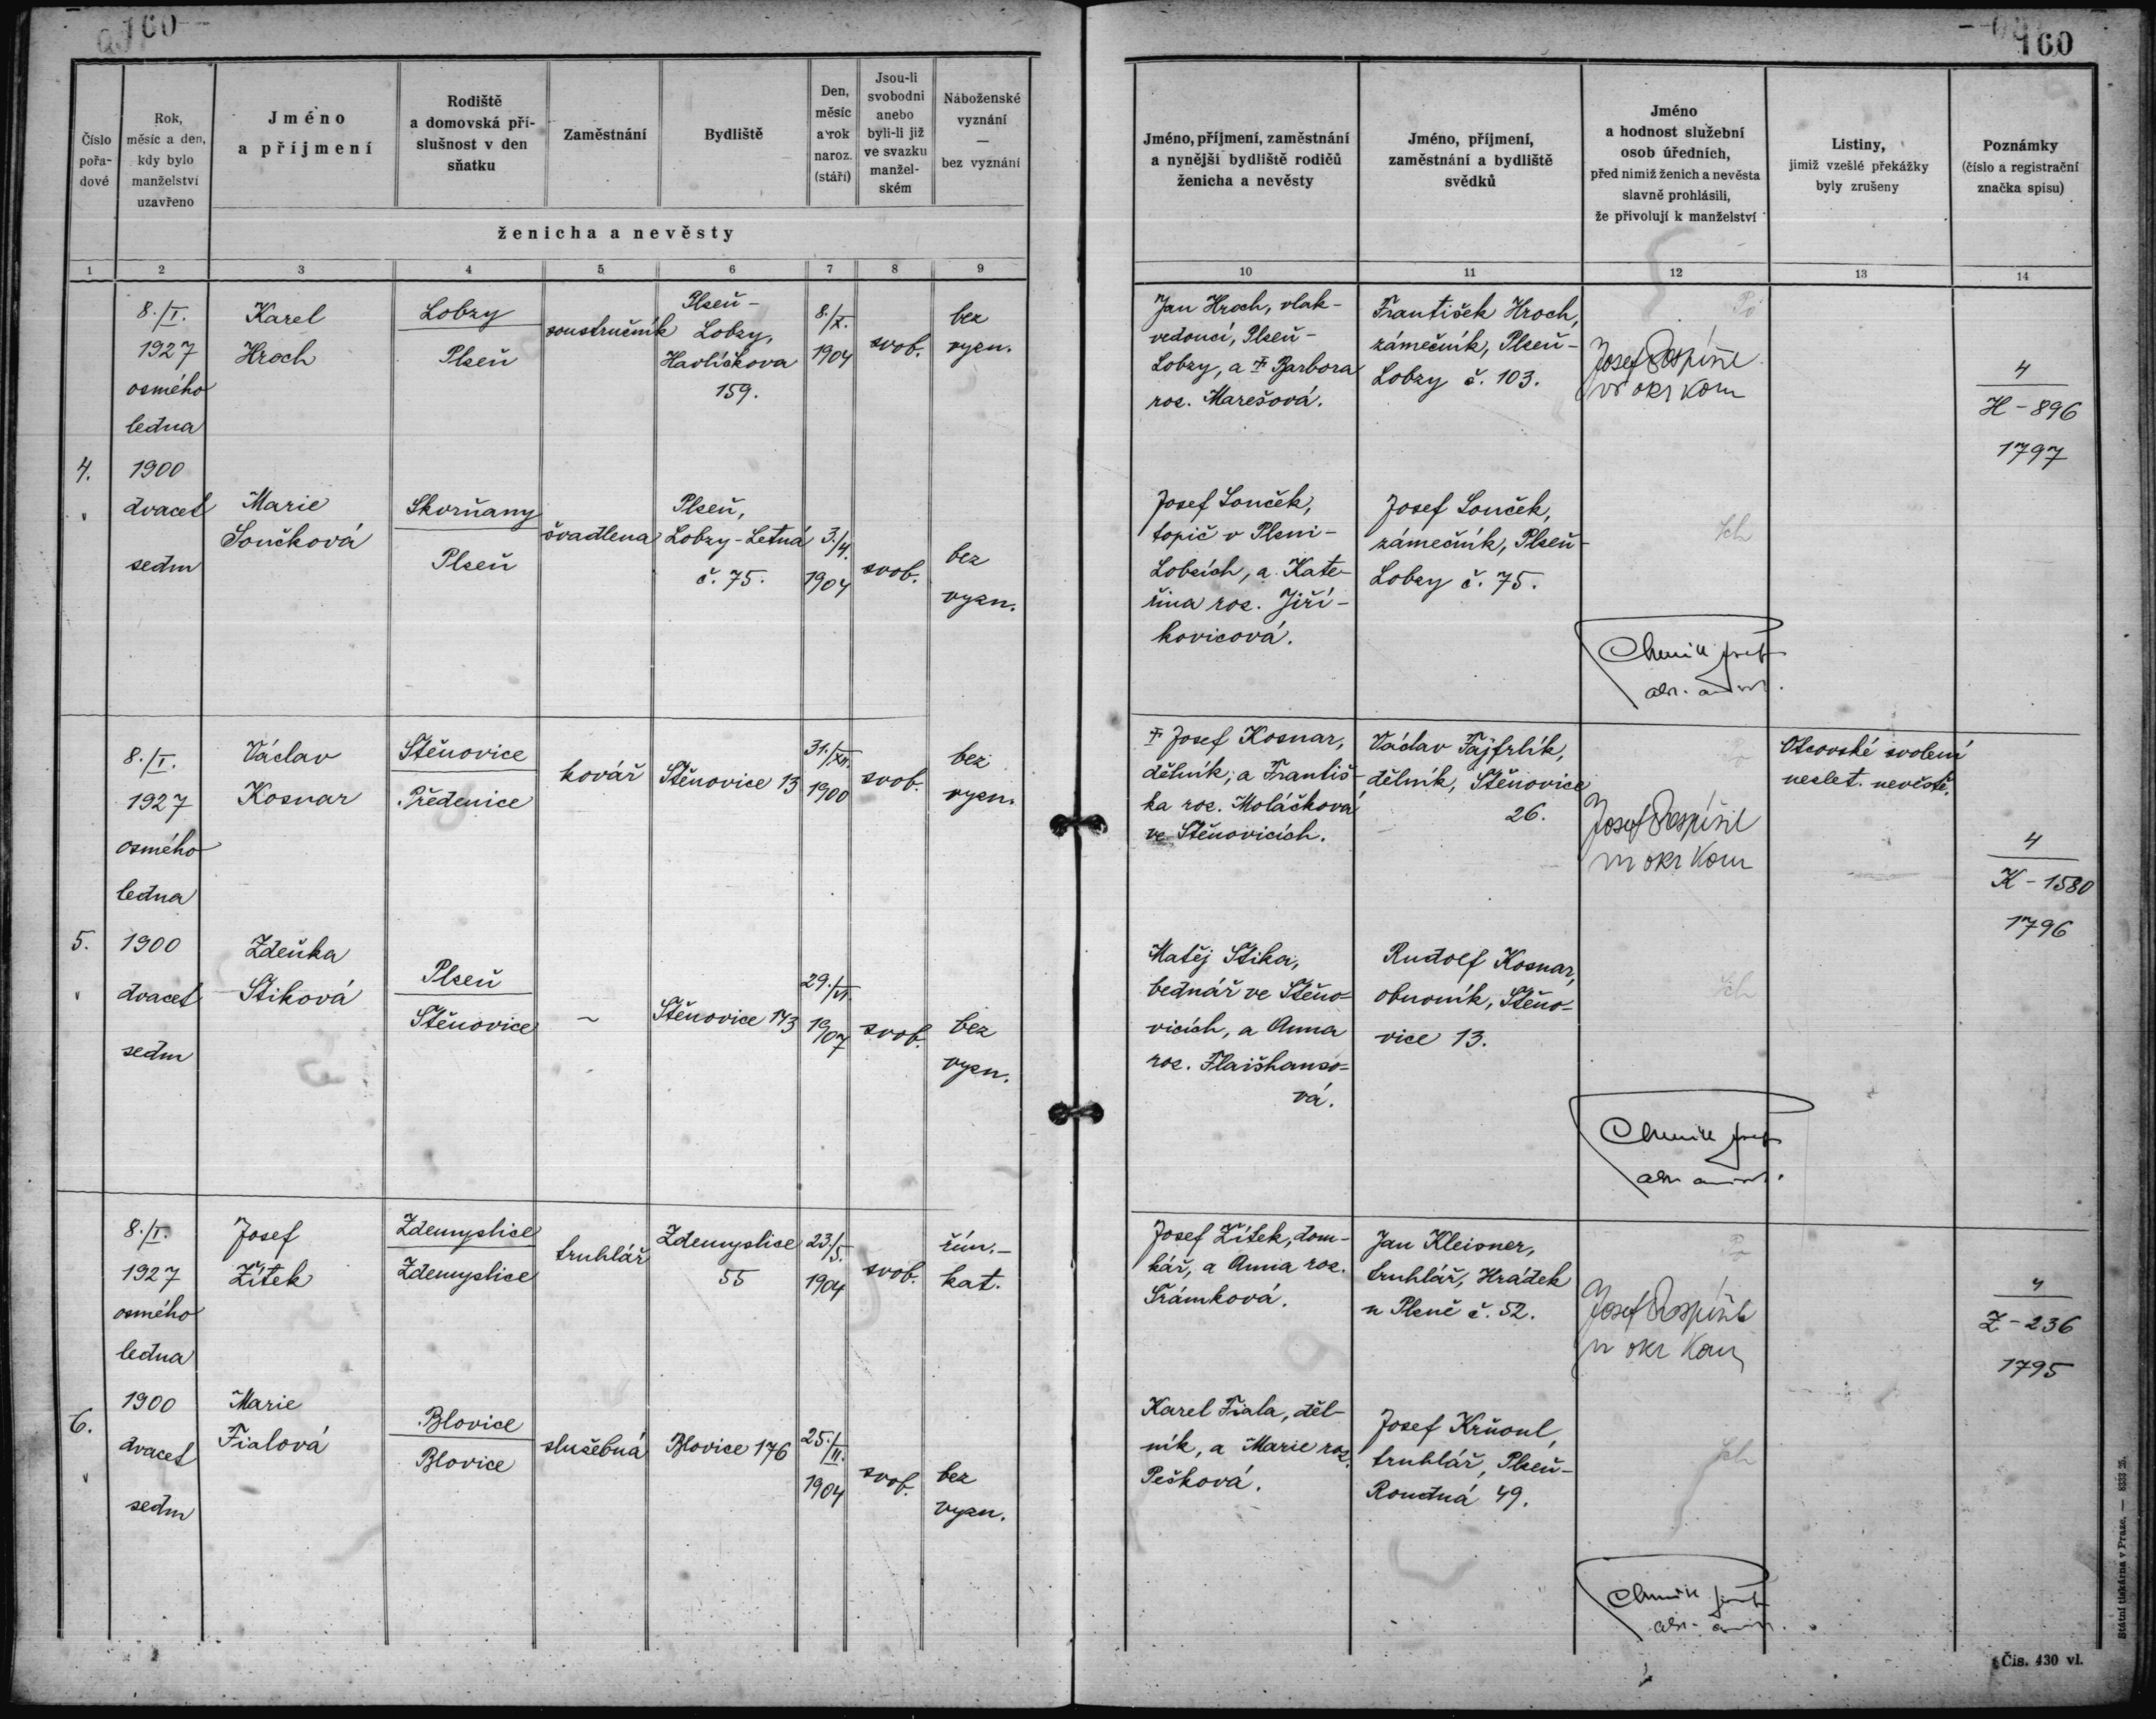 160
160
Číslo pořa- dové
Rok, měsíc a den, kdy bylo manželství uzavřeno
Jméno a příjmení
Rodiště a domovská pří- slušnost v den sňatku
Zaměstnání
Bydliště
Den, měsíc a rok naroz. (stáří)
Jsou-li svobodni anebo byli-li již ve svazku manžel- ském
Náboženské vyznání — bez vyznání
ženicha a nevěsty
Jméno, příjmení, zaměstnání a nynější bydliště rodičů ženicha a nevěsty
Jméno, příjmení, zaměstnání a bydliště svědků
Jméno a hodnost služební osob úředních, před nimiž ženich a nevěsta slavně prohlásili, že přivolují k manželství
Listiny, jimiž vzešlé překážky byly zrušeny
Poznámky (číslo a registrační značka spisu)
1 2 3 4 5 6 7 8 9 10 11 12 13 14
4.
8./I.
1927
osmého
ledna
1900
dvacet
sedm
Karel
Hroch
Lobzy
Plseň
soustružník
Plseň-
Lobzy,
Havlíčkova
159.
8./X.
1904
svob.
bez
vyzn.
Jan Hroch, vlak-
vedoucí, Plseň-
Lobzy, a ✝ Barbora
roz. Marešová.
František Hroch,
zámečník, Plseň-
Lobzy č. 103.
Josef Pospíšil
okr kom
4
H-896
1797
Marie
Součková
Skorňany
Plseň
švadlena
Plseň,
Lobzy-Letná
č. 75.
3./4.
1904
svob.
bez
vyzn.
Josef Souček,
topič v Plsni-
Lobzích, a Kate-
řina roz. Jiří-
kovicová.
Josef Souček,
zámečník, Plseň-
Lobzy č. 75.
5.
8./I.
1927
osmého
ledna
1900
dvacet
sedm
Václav
Kosnar
Štěnovice
Předenice
kovář
Štěnovice 13
31./XII.
1900
svob.
bez
vyzn.
✝ Josef Kosnar,
dělník, a Františ-
ka roz. Moláčková
ve Štěnovicích.
Václav Fajfrlík,
dělník, Štěnovice
26.
Josef Pospíšil
okr kom
Otcovské svolení
neslet. nevěstě.
4
K-1580
1796
Zdeňka
Stiková
Plseň
Štěnovice
~
Štěnovice 143
29./VI.
1907
svob.
bez
vyzn.
Matěj Stika,
bednář ve Štěno-
vicích, a Anna
roz. Flaišhanso-
vá.
Rudolf Kosnar,
obuvník, Štěno-
vice 13.
6.
8./I.
1927
osmého
ledna
1900
dvacet
sedm
Josef
Žítek
Zdemyslice
Zdemyslice
truhlář
Zdemyslice
55
23/5.
1904
svob.
řím.-
kat.
Josef Žítek, dom-
kář, a Anna roz.
Šrámková.
Jan Kleisner,
truhlář, Hrádek
u Plzně č. 52.
Josef Pospíšil
okr kom
4
Z-236
1795
Marie
Fialová
Blovice
Blovice
služebná
Blovice 176
25./II.
1904
svob.
bez
vyzn.
Karel Fiala, děl-
ník, a Marie roz.
Pešková.
Josef Krňoul,
truhlář, Plseň-
Roudná 49.
Státní tiskárna v Praze. — 8333 25.
Čís. 430 vl.